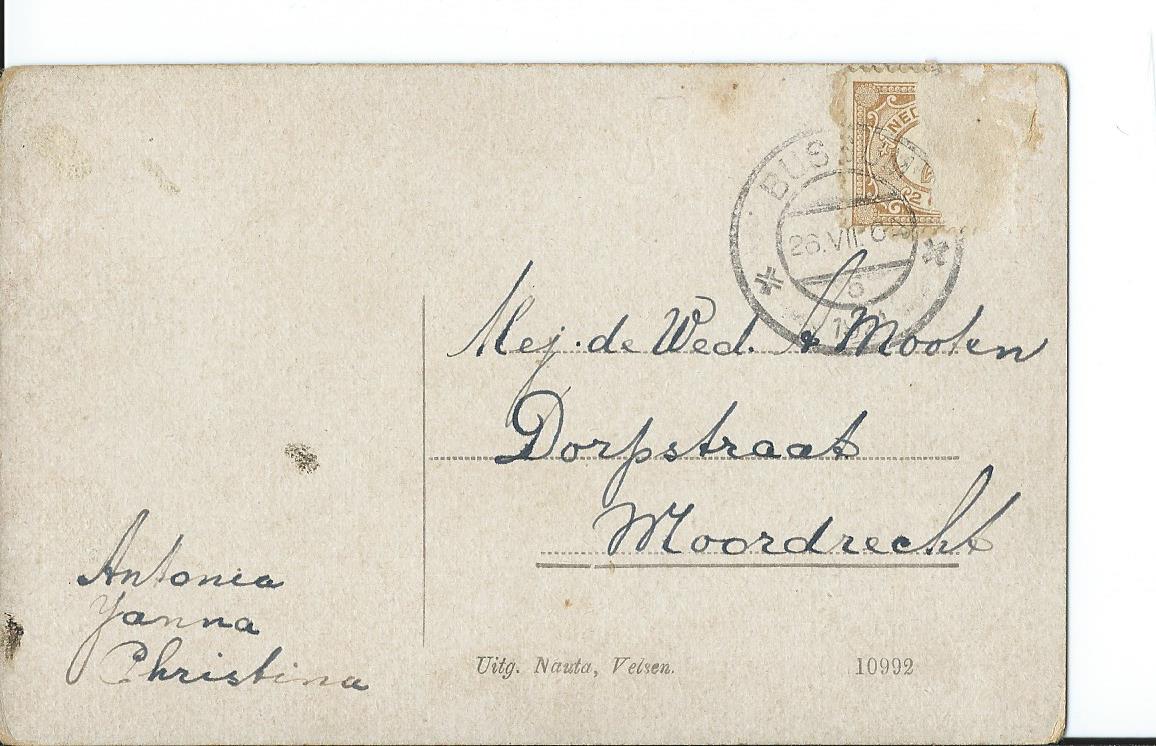 NED
BUS
26.VII.0
6
Mej. de Wed. Mooten
Dorpstraat
Moordrecht
Antonia
Janna
Christina
Uitg. Nauta, Velsen.
10992